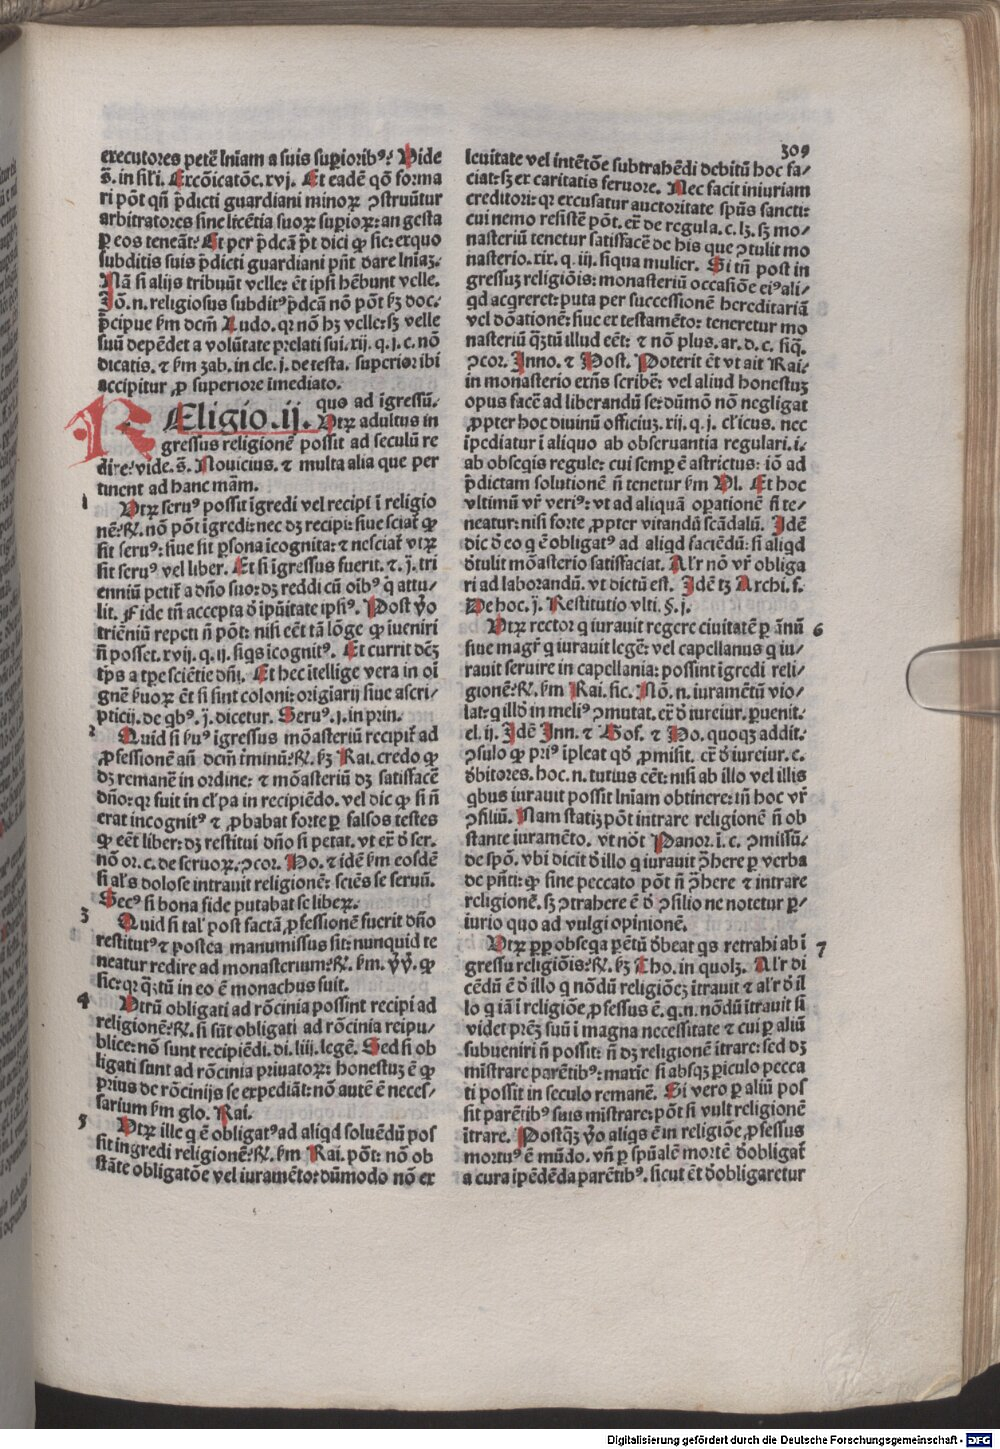 309
executores petẽ lnĩam a suis superiorib⁹? Vide
s̃. in sil'i. Excõicatõe. xvj. Et eadẽ qõ forma
ri põt qñ p̃dicti guardiani minoꝝ ↄstruũtur
arbitratores sine licẽtia suoꝝ supioꝝ: an gesta
ꝑ eos teneãt? Et per p̃dcã p̃t dici ꝙ sic: exquo
subditis suis p̃dicti guardiani pñt dare lniaꝫ.
Nã si alijs tribuũt velle: ẽt ipsi hẽbunt velle.
Jõ. n. religiosus subdit⁹ p̃dcã nõ põt ẜꝫ doc.
p̃cipue ẜm dcm̃ Ludo. qꝛ nõ hꝫ velle: sꝫ velle
suũ depẽdet a volũtate prelati sui. xij. q. j. c. nõ
dicatis. ⁊ ẜm zab. in cle. j. de testa. superior ibi
accipitur ꝓ superiore ĩmediato.
REligio. ij. quo ad ĩgressũ.
Vtꝝ adultus in
gressus religionẽ possit ad seculũ re
dire? vide. s̃. Nouicius. ⁊ multa alia que per
tinent ad hanc mãm.
1 Vtꝝ seru⁹ possit ĩgredi vel recipi ĩ religio
nẽ? ꝶ. nõ põt ĩgredi: nec dꝫ recipi: siue sciat̃ ꝙ
sit seru⁹: siue sit ꝑsona ĩcognita: ⁊ nesciat̃ vtꝝ
sit seru⁹ vel liber. Et si ĩgressus fuerit. ⁊. j. tri
enniũ petit̃ a dño suo: dꝫ reddi cũ oĩb⁹ q̃ attu/
lit. Fide tñ accepta d̾ ipũitate ipsi⁹. Post v̾o
triẽniũ repeti ñ põt: nisi eẽt tã lõge ꝙ iueniri
ñ posset. xvij. q. ij. siqs ĩcognit⁹. Et currit dẽꝫ
tp̃s a tꝑe sciẽtie dñj. Et hec ĩtellige vera in oĩ
gnẽ ẜuoꝝ ẽt si sint coloni: origiarij siue ascri/
pticij. de qb⁹. j. dicetur. Seru⁹. j. in prin.
2 Quid si ẜu⁹ ĩgressus mõasteriũ recipit̃ ad
ꝓfessionẽ añ dcm̃ t̾minũ? ꝶ. ẜꝫ Rai. credo ꝙ
dꝫ remanẽ in ordine: ⁊ mõasteriũ dꝫ satisfacẽ
dño: qꝛ fuit in cl'pa in recipiẽdo. vel dic ꝙ si ñ
erat incognit⁹ ⁊ ꝓbabat forte ꝑ falsos testes
ꝙ eẽt liber: dꝫ restitui dño si petat. vt ex̃ d̾ ser.
nõ or. c. de seruoꝝ. ↄcor. Ho. ⁊ idẽ ẜm eosdẽ
si al's dolose intrauit religionẽ: sciẽs se seruũ.
Sec⁹ si bona fide putabat se libeꝝ.
3 Quid si tal' post factã ꝓfessionẽ fuerit dño
restitut⁹ ⁊ postea manumissus sit: nunquid te
neatur redire ad monasterium? ꝶ. ẜm. ỹỹ. ꝙ
sic: qꝛ q̃tũ in eo ẽ monachus fuit.
4 Vtrũ obligati ad rõcinia possint recipi ad
religionẽ? ꝶ. si sũt obligati ad rõcinia reipu/
blice: nõ sunt recipiẽdi. di. liij. legẽ. Sed si ob
ligati sunt ad rõcinia priuatoꝝ: honestuꝫ ẽ ꝙ
prius de rõcinijs se expediãt: nõ autẽ ẽ neces/
sarium ẜm glo. Rai.
5 Vtꝝ ille q ẽ obligat⁹ ad aliqd soluẽdũ pos
sit ingredi religionẽ? ꝶ. ẜm Rai. põt: nõ ob
stãte obligatõe vel iuramẽto: dũmodo nõ ex
leuitate vel intẽtõe subtrahẽdi debitũ hoc fa/
ciat: sꝫ ex caritatis feruore. Nec facit iniuriam
creditori: qꝛ excusatur auctoritate spũs sancti:
cui nemo resistẽ põt. ex̃ de regula. c. lꝫ. sꝫ mo/
nasteriũ tenetur satisfacẽ de his que ↄtulit mo
nasterio. xix. q. iij. siqua mulier. Si tñ post in
gressuꝫ religiõis: monasteriũ occasiõe ei⁹ ali/
qd acqreret: puta per successionẽ hereditariã
vel dõationẽ: siue ex testamẽto: teneretur mo
nasteriũ q̃ꝫtũ illud eẽt: ⁊ nõ plus. ar. d. c. siq̃.
ↄcor. Inno. ⁊ Host. Poterit ẽt vt ait Rai.
in monasterio exñs scribẽ: vel aliud honestuꝫ
opus facẽ ad liberandũ se: dũmõ nõ negligat
ꝓpter hoc diuinũ officiuꝫ. xij. q. j. cl'icus. nec
ĩpediatur ĩ aliquo ab obseruantia regulari. i.
ab obseqis regule: cui semꝑ ẽ astrictus: iõ ad
p̃dictam solutionẽ ñ tenetur ẜm Vl. Et hoc
vltimũ vr̃ veri⁹: vt ad aliquã oꝑationẽ ñ te/
neatur: nisi forte ꝓpter vitandũ scãdalũ. Idẽ
dic d̾ eo q ẽ obligat⁹ ad aliqd faciẽdũ: si aliqd
d̾tulit mõasterio satisfaciat. Al'r nõ vr̃ obliga
ri ad laborandũ. vt dictũ est. Idẽ tꝫ Archi. s.
De hoc. j. Restitutio vlti. §. j.
6 Vtꝝ rector q iurauit regere ciuitatẽ ꝑ ãnũ
siue magr̃ q iurauit legẽ: vel capellanus q iu/
rauit seruire in capellania: possint ĩgredi reli/
gionẽ? ꝶ. ẜm Rai. sic. Nõ. n. iuramẽtũ vio/
lat: q illd̾ in meli⁹ ↄmutat. ex̃ d̾ iureiur. ꝑuenit.
el. ij. Idẽ Inn. ⁊ Gof. ⁊ Ho. quoqꝫ addit.
ↄsulo ꝙ pri⁹ ĩpleat qd̾ ꝓmisit. ex̃ d̾ iureiur. c.
d̾bitores. hoc. n. tutius eẽt: nisi ab illo vel illis
qbus iurauit possit lniam obtinere: iñ hoc vr̃
ↄsiliũ. Nam statiꝫ põt intrare religionẽ ñ ob
stante iuramẽto. vt nõt Panor. ĩ. c. ↄmissũ.
de spõ. vbi dicit d̾ illo q iurauit ↄ̃here ꝑ verba
de pñti: ꝙ sine peccato põt ñ ↄ̃here ⁊ intrare
religionẽ. sꝫ ↄtrahere ẽ d̾ ↄsilio ne notetur ꝑ/
iurio quo ad vulgi opinionẽ.
7 Vtꝝ ꝓꝑ obseqa pẽtũ d̾beat qs retrahi ab ĩ
gressu religiõis? ꝶ. ẜꝫ Tho. in quolꝫ. Al'r di
cẽdũ ẽ d̾ illo q nõdũ religiõeꝫ ĩtrauit ⁊ al'r d̾ il
lo q iã ĩ religiõe ꝓfessus ẽ. q. n. nõdũ ĩtrauit si
videt prẽꝫ suũ ĩ magna necessitate ⁊ cui ꝑ aliũ
subueniri ñ possit: ñ dꝫ religionẽ ĩtrare: sed dꝫ
mĩstrare parẽtib⁹: maxie si absqꝫ ꝑiculo pecca
ti possit in seculo remanẽ. Si vero ꝑ aliũ pos
sit parẽtib⁹ suis mĩstrare: põt si vult religionẽ
ĩtrare. Postq̃ꝫ v̾o aliqs ẽ in religiõe ꝓfessus
mortu⁹ ẽ mũdo. vñ ꝑ spũalẽ mortẽ d̾obligat̃
a cura ipẽdẽda parẽtib⁹. sicut ẽt d̾obligaretur
Digitalisierung gefördert durch die Deutsche Forschungsgemeinschaft - DFG